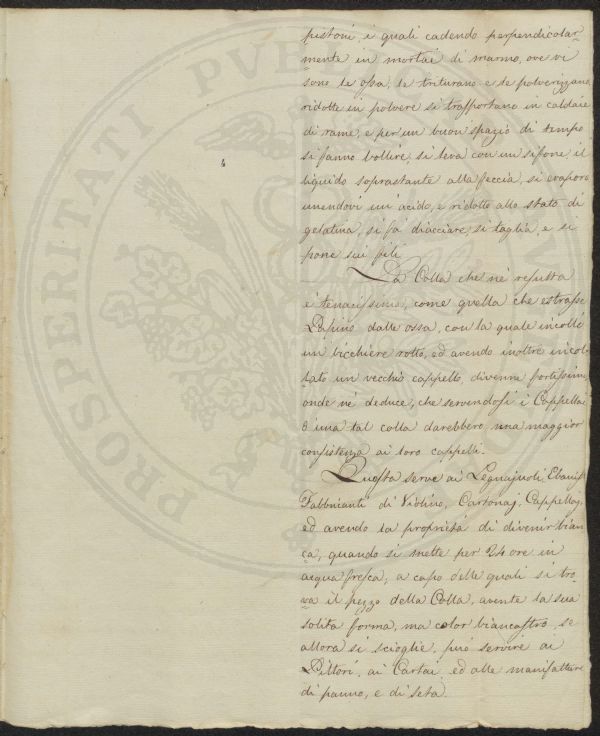 pistoni i quali cadendo perpendicolar-
mente in mortai di marmo, ove vi
sono le ossa, le triturano e le polverizzano
ridotte in polvere si trasportano in caldaie
di rame, e per un buon spazio di tempo
si fanno bollire, si leva con un sifone il
liquido soprastante alla feccia, si evapora
unendovi un'acido, e ridotto allo stato di
gelatina, si fà diacciare, si taglia, e si
pone sui fili
La Colla che nè resulta
è tenacissima, come quella che estrasse
Papino dalle ossa, con la quale incollò
un bicchiere rotto, ed avendo inoltre incol-
lato un vecchio cappello, divenne fortissimo
onde nè deduce, che servendosi i Cappellai
d'una tal colla darebbero una maggior
consistenza ai loro cappelli.
Questa serve ai Legnajuoli, Ebanisti
Fabbricanti di Violino, Cartonaj, Cappellaj,
ed avendo la proprietà di divenir bian-
ca, quando si mette per 24 ore in
acqua fresca, a capo delle quali si tro-
va il pezzo della Colla, avente la sua
solita forma, ma color biancastro, se
allora si scioglie, può servire ai
Pittori, ai Cartai, ed alle manifatture
di panno, e di seta.
PROSPERITATI PVBL